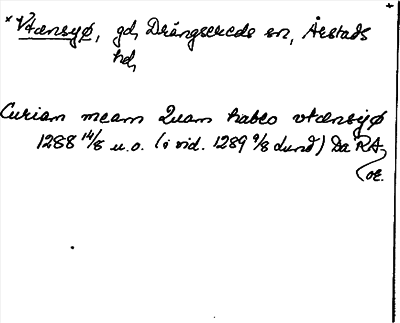 * Vtænsyø, gd, Drängsereds sn, Årstads
hd,
Curiam meam Quam habeo vtænsyø
1288 14/8 u.o. (i vid. 1289 9/8 Lund) Da RA.
OE.